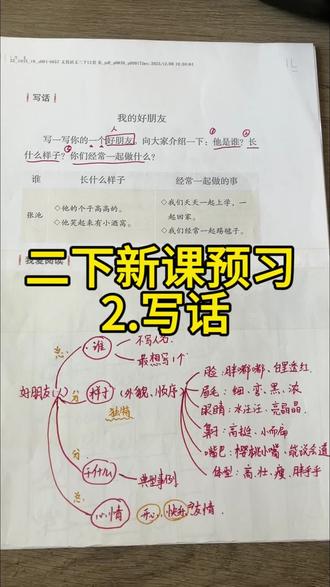 写话
我的好朋友
人
写一写你的一个好朋友,向大家介绍一下:他是谁?长
什么样子?你们经常一起做什么?
谁 长什么样子 经常一起做的事
张池 ◇他的个子高高的。 ◇我们天天一起上学,一
◇他笑起来有小酒窝。 起回家。
◇我们经常一起踢毽子。
我爱阅读
二下新课预习
2.写话
总: 谁 不写人名
最想写1个
好朋友(人) 分 样子 (外貌、顺序)
独特
脸:胖嘟嘟、白里透红
眉毛:细、弯、黑、浓
眼睛:水汪汪、亮晶晶
鼻子:高挺、小而扁
嘴巴:樱桃小嘴、能说会道
体型:高、壮、瘦、胖乎乎
分 干什么 典型事例
总: 心情 开心、快乐 友情